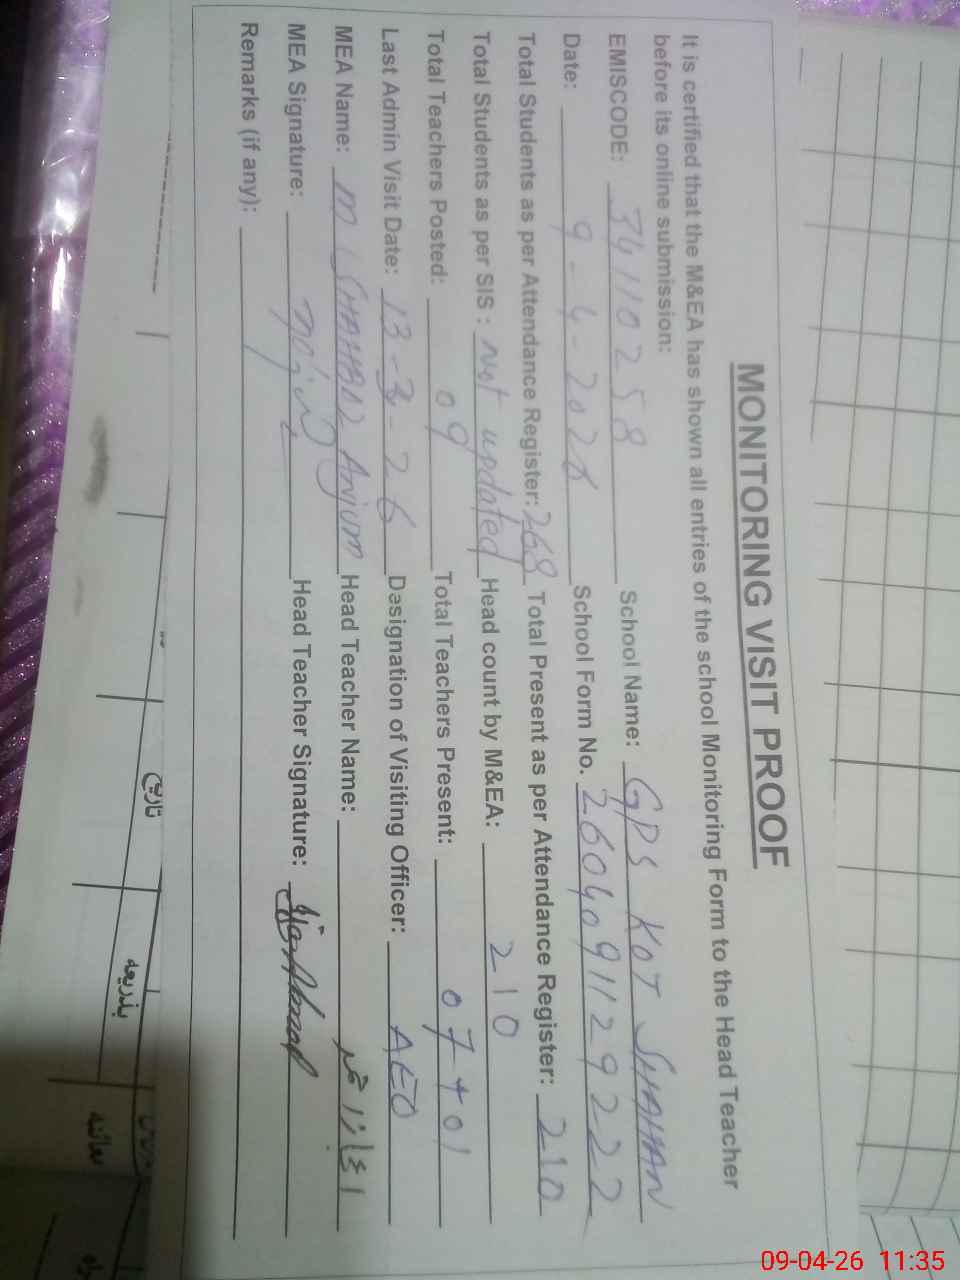 MONITORING VISIT PROOF
It is certified that the M&EA has shown all entries of the school Monitoring Form to the Head Teacher
before its online submission:
EMISCODE: 34110258 School Name: GPS KOT SHAHAN
Date: 9-4-2026 School Form No. 260409112922 2
Total Students as per Attendance Register: 268 Total Present as per Attendance Register: 210
Total Students as per SIS : Not updated Head count by M&EA: 210
Total Teachers Posted: 09 Total Teachers Present: 07+01
Last Admin Visit Date: 13-3-26 Designation of Visiting Officer: AEO
MEA Name: M. SHAHBAZ Anjum Head Teacher Name:
MEA Signature: Head Teacher Signature:
Remarks (if any):
تاریخ
بذریعہ
09-04-26 11:35